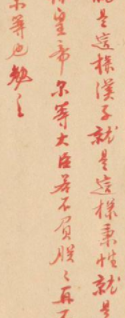 就是這樣漢子就是這樣秉性就是
皇帝尔等大臣若不負朕〻再
尔等也勉之